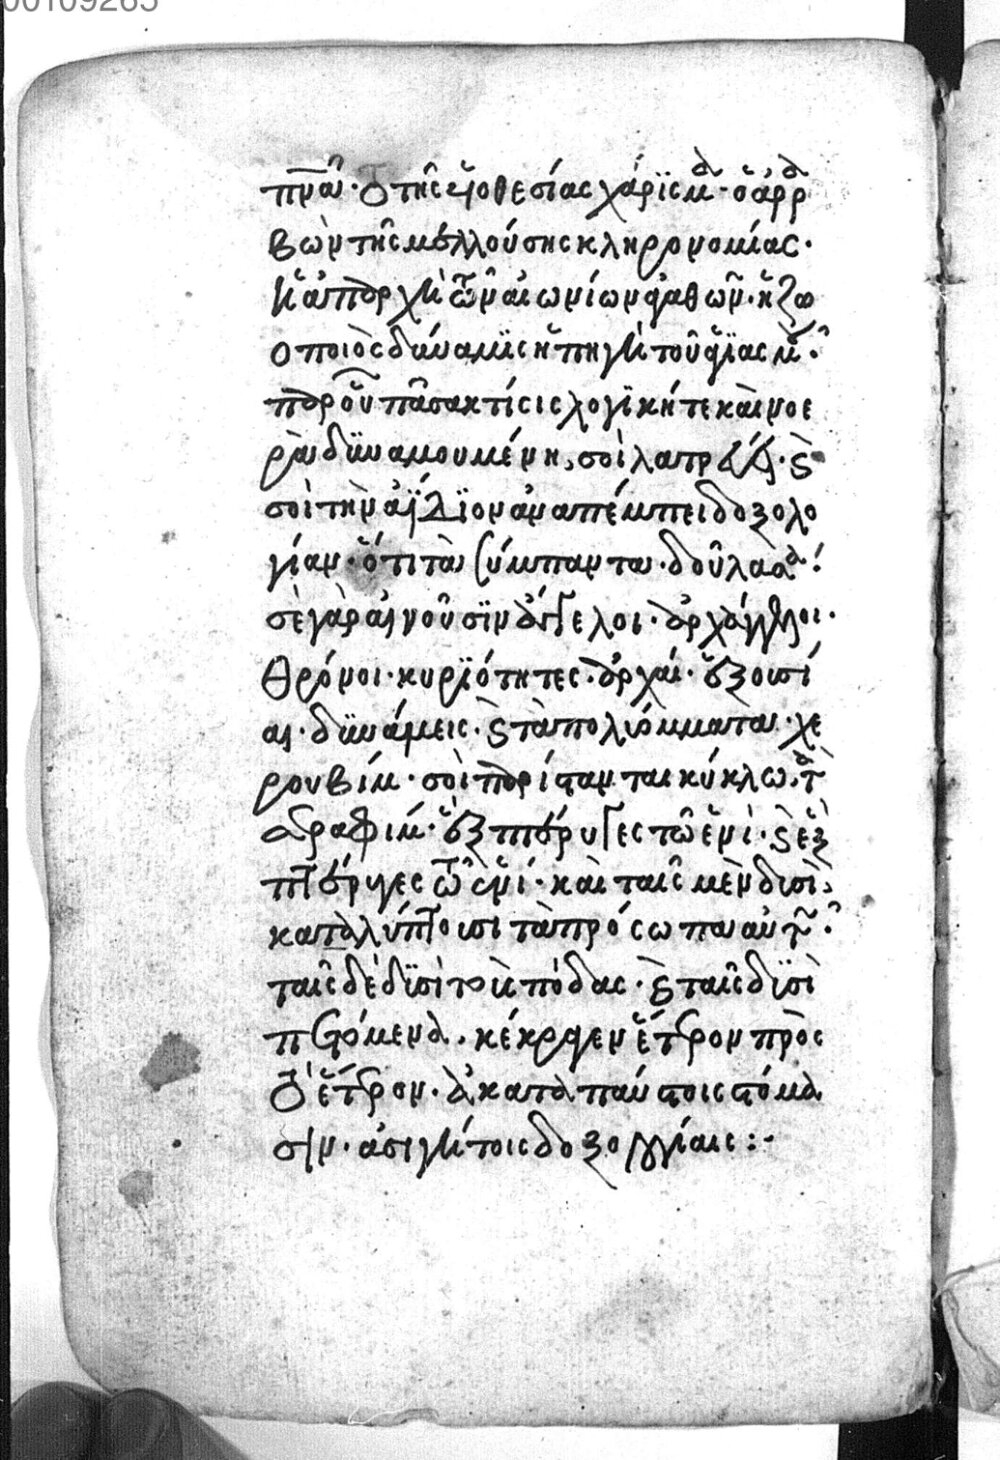 00109265
πνᾶ· ὁ τῆς υἱοθεσίας χάρισμ· ὁ ἀρρ
βὼν τῆς μελλούσης κληρονομίας·
ἡ ἀπαρχὴ τῶν αἰωνίων ἀγαθῶν· ἡ ζω
οποιὸς δύναμις ἡ πηγὴ τοῦ ἁγιασμ·
παρ οὗ πᾶσα κτίσις λογϊκή τε καὶ νοε
ρὰ δϋναμουμένη, σοὶ λατρεύει· ϗ
σοὶ τὴν ἀΐδϊον ἀναπέμπει δοξολο
γίαν· ὅτι τὰ σύμπαντα δοῦλα σά·
σὲ γὰρ αἰνοῦσϊν ἄγγελοι· ἀρχάγγελοι·
θρόνοι· κυρϊότητες· ἀρχαί· ἐξουσί
αι· δϋνάμεις· ϗ τὰ πολυόμματα χε
ρουβίμ· σοὶ παρίστανται κύκλω, τὰ
σεραφίμ· ἓξ πτέρυγες τῶ ἑνὶ· ϗ ἓξ
πτέρυγες τῶ ἑνί· καὶ ταῖς μὲν δυσὶ,
κατακαλύπτουσι τὰ πρόσωπα αὐτῶν·
ταῖς δὲ δϋσὶ τοὺς πόδας· ϗ ταῖς δϋσὶ
πετόμενα· κέκραγεν ἕτερον πρὸς
τὸ ἕτερον· ἀκαταπαύστοις στόμα
σιν· ἀσιγήτοις δοξολογίαις:-